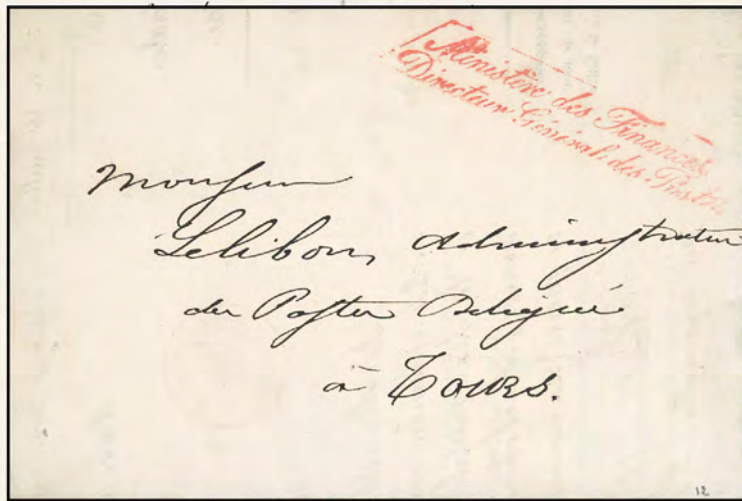 Ministère des Finances
Directeur Général des Postes
Monsieur
Lelibon, Administrateur
des Postes Délégué
à Tours.
12